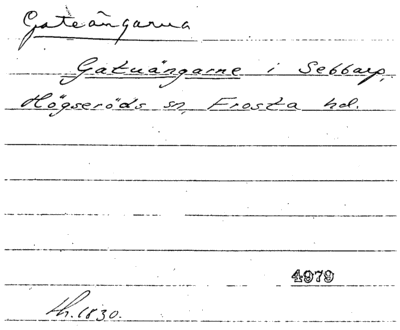 Gateängarna
Gatuängarne i Sebbarp,
Högseröds sn, Frosta hd.
4979
lh. 1830.